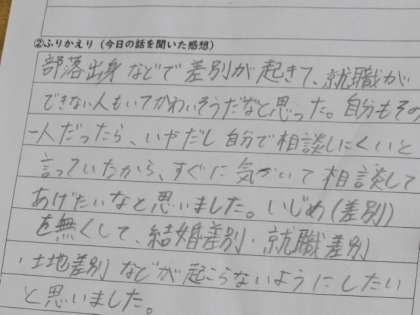 ②ふりかえり（今日の話を聞いた感想）
部落出身などで差別が起きて、就職が
できない人もいてかわいそうだなと思った。自分もその
一人だったら、いやだし自分で相談しにくいと
言っていたから、すぐに気づいて相談して
あげたいなと思いました。いじめ（差別）
を無くして、結婚差別・就職差別
・土地差別などが起こらないようにしたい
と思いました。